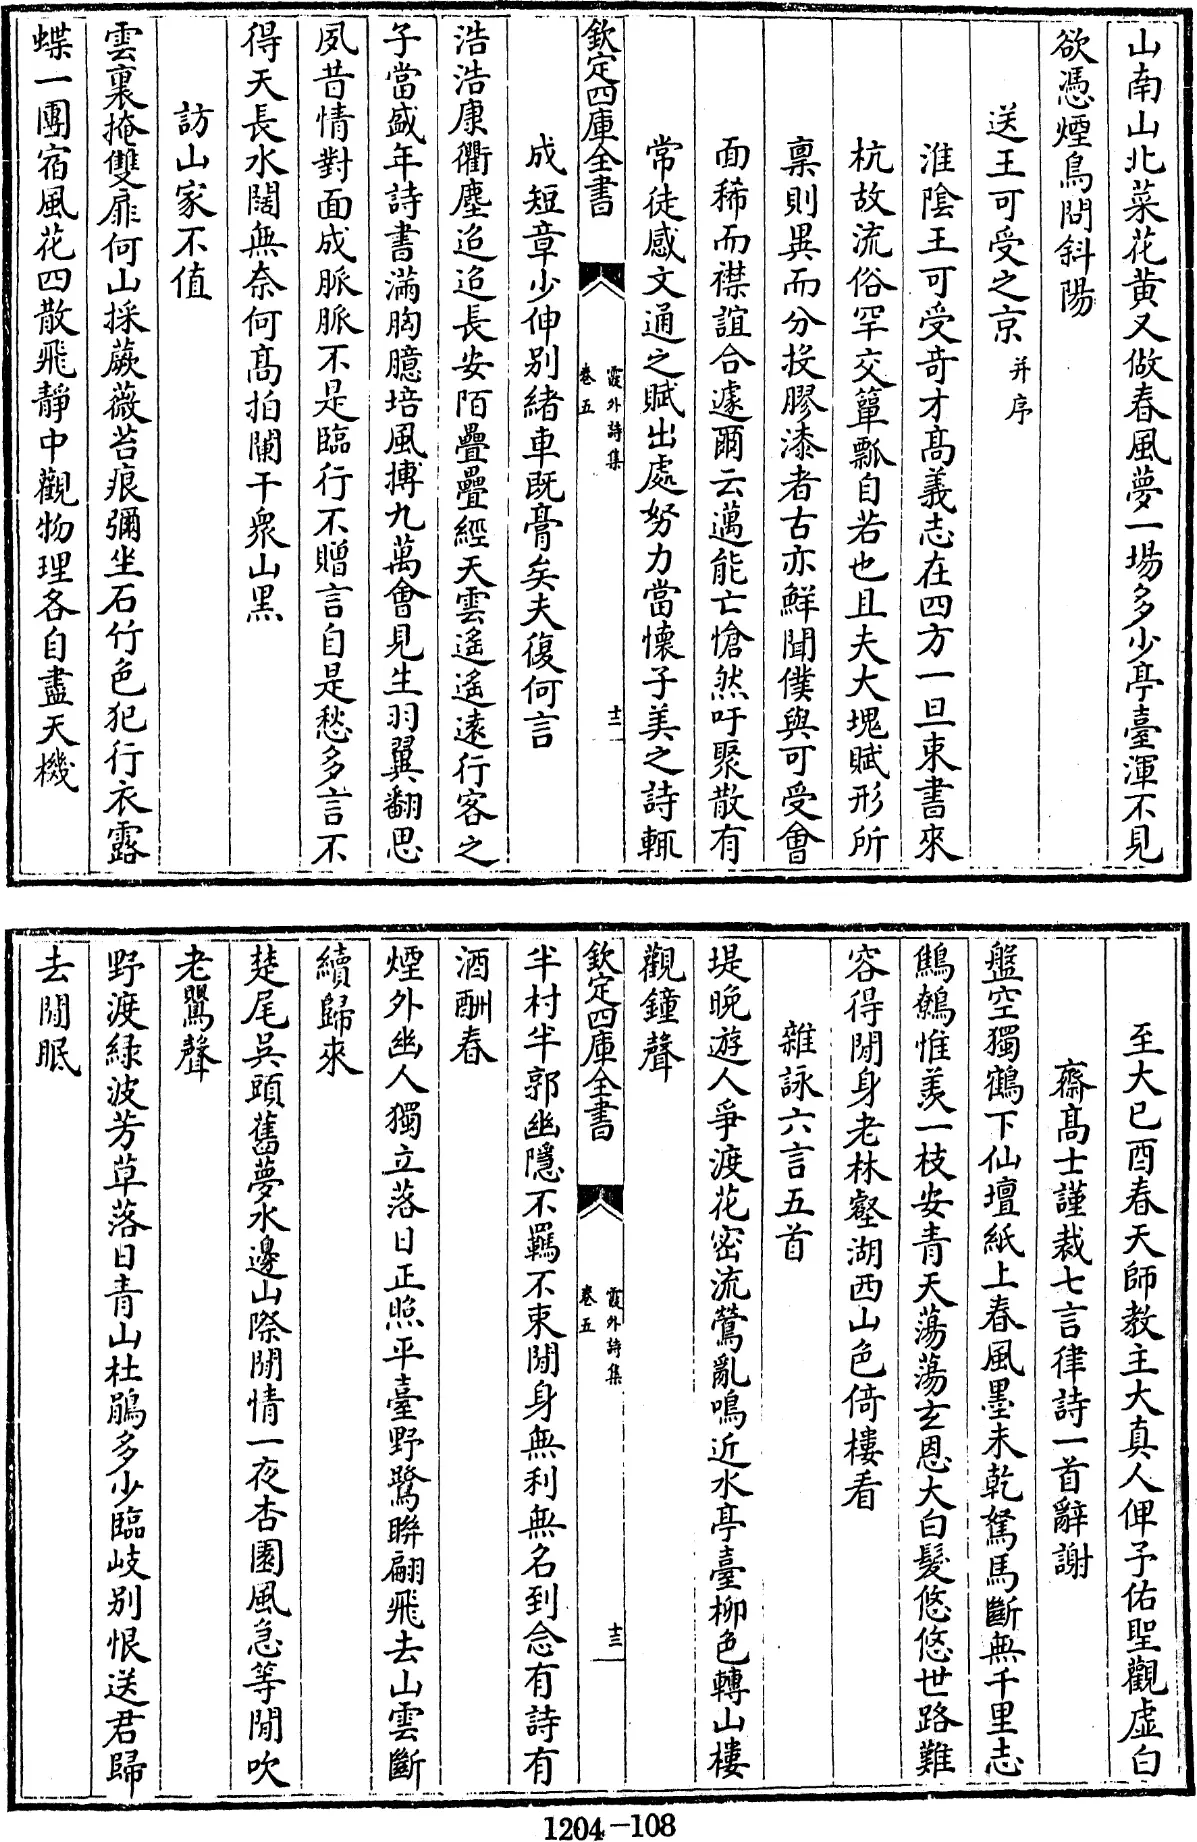 山南山北菜花黄又做春風夢一場多少亭臺渾不見
欲憑煙鳥問斜陽
送王可受之京并序
淮陰王可受奇才髙義志在四方一旦束書來
杭故流俗罕交簞瓢自若也且夫大塊賦形所
禀則異而分投膠漆者古亦鮮聞僕與可受會
面稀而襟誼合遽爾云邁能亡愴然吁聚散有
常徒感文通之賦出處努力當懷子美之詩輒
欽定四庫全書
霞外詩集
卷五
十二
成短章少伸别緒車既膏矣夫復何言
浩浩康衢塵迢迢長安陌疊疊經天雲遙遙逺行客之
子當盛年詩書滿胸臆培風搏九萬會見生羽翼翻思
夙昔情對面成脈脈不是臨行不贈言自是愁多言不
得天長水闊無奈何髙拍闌干衆山黑
訪山家不值
雲裏掩雙扉何山採蕨薇苔痕彌坐石竹色犯行衣露
蝶一團宿風花四散飛靜中觀物理各自盡天機
至大已酉春天師教主大真人俾予佑聖觀虚白
齋髙士謹裁七言律詩一首辭謝
盤空獨鶴下仙壇紙上春風墨未乾駑馬斷無千里志
鷦鷯惟羡一枝安青天蕩蕩玄恩大白髮悠悠世路難
容得閒身老林壑湖西山色倚樓看
雜詠六言五首
堤晚遊人爭渡花密流鶯亂鳴近水亭臺柳色轉山樓
觀鐘聲
欽定四庫全書
霞外詩集
卷五
十三
半村半郭幽隱不羈不束閒身無利無名到念有詩有
酒酬春
煙外幽人獨立落日正照平臺野鷺聨翩飛去山雲斷
續歸來
楚尾吳頭舊夢水邊山際閒情一夜杏園風急等閒吹
老鶯聲
野渡緑波芳草落日青山杜鵑多少臨岐别恨送君歸
去閒眠
1204—108